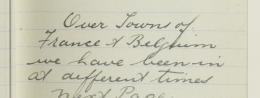 Over Towns of
France & Belgium
we have been in
at different times
Next Page